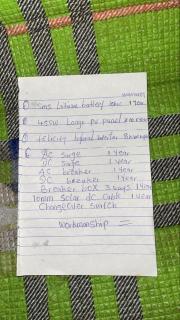 warranty
sms Lithium battery 1 year
455W Longi pv panel
felicity hybrid inverter
AC surge 1 year
DC surge 1 year
AC breaker 1 year
DC breaker 1 year
Breaker box 3 ways 1 year
10mm Solar DC Cable 1 year
ChangeOver switch
workmanship =